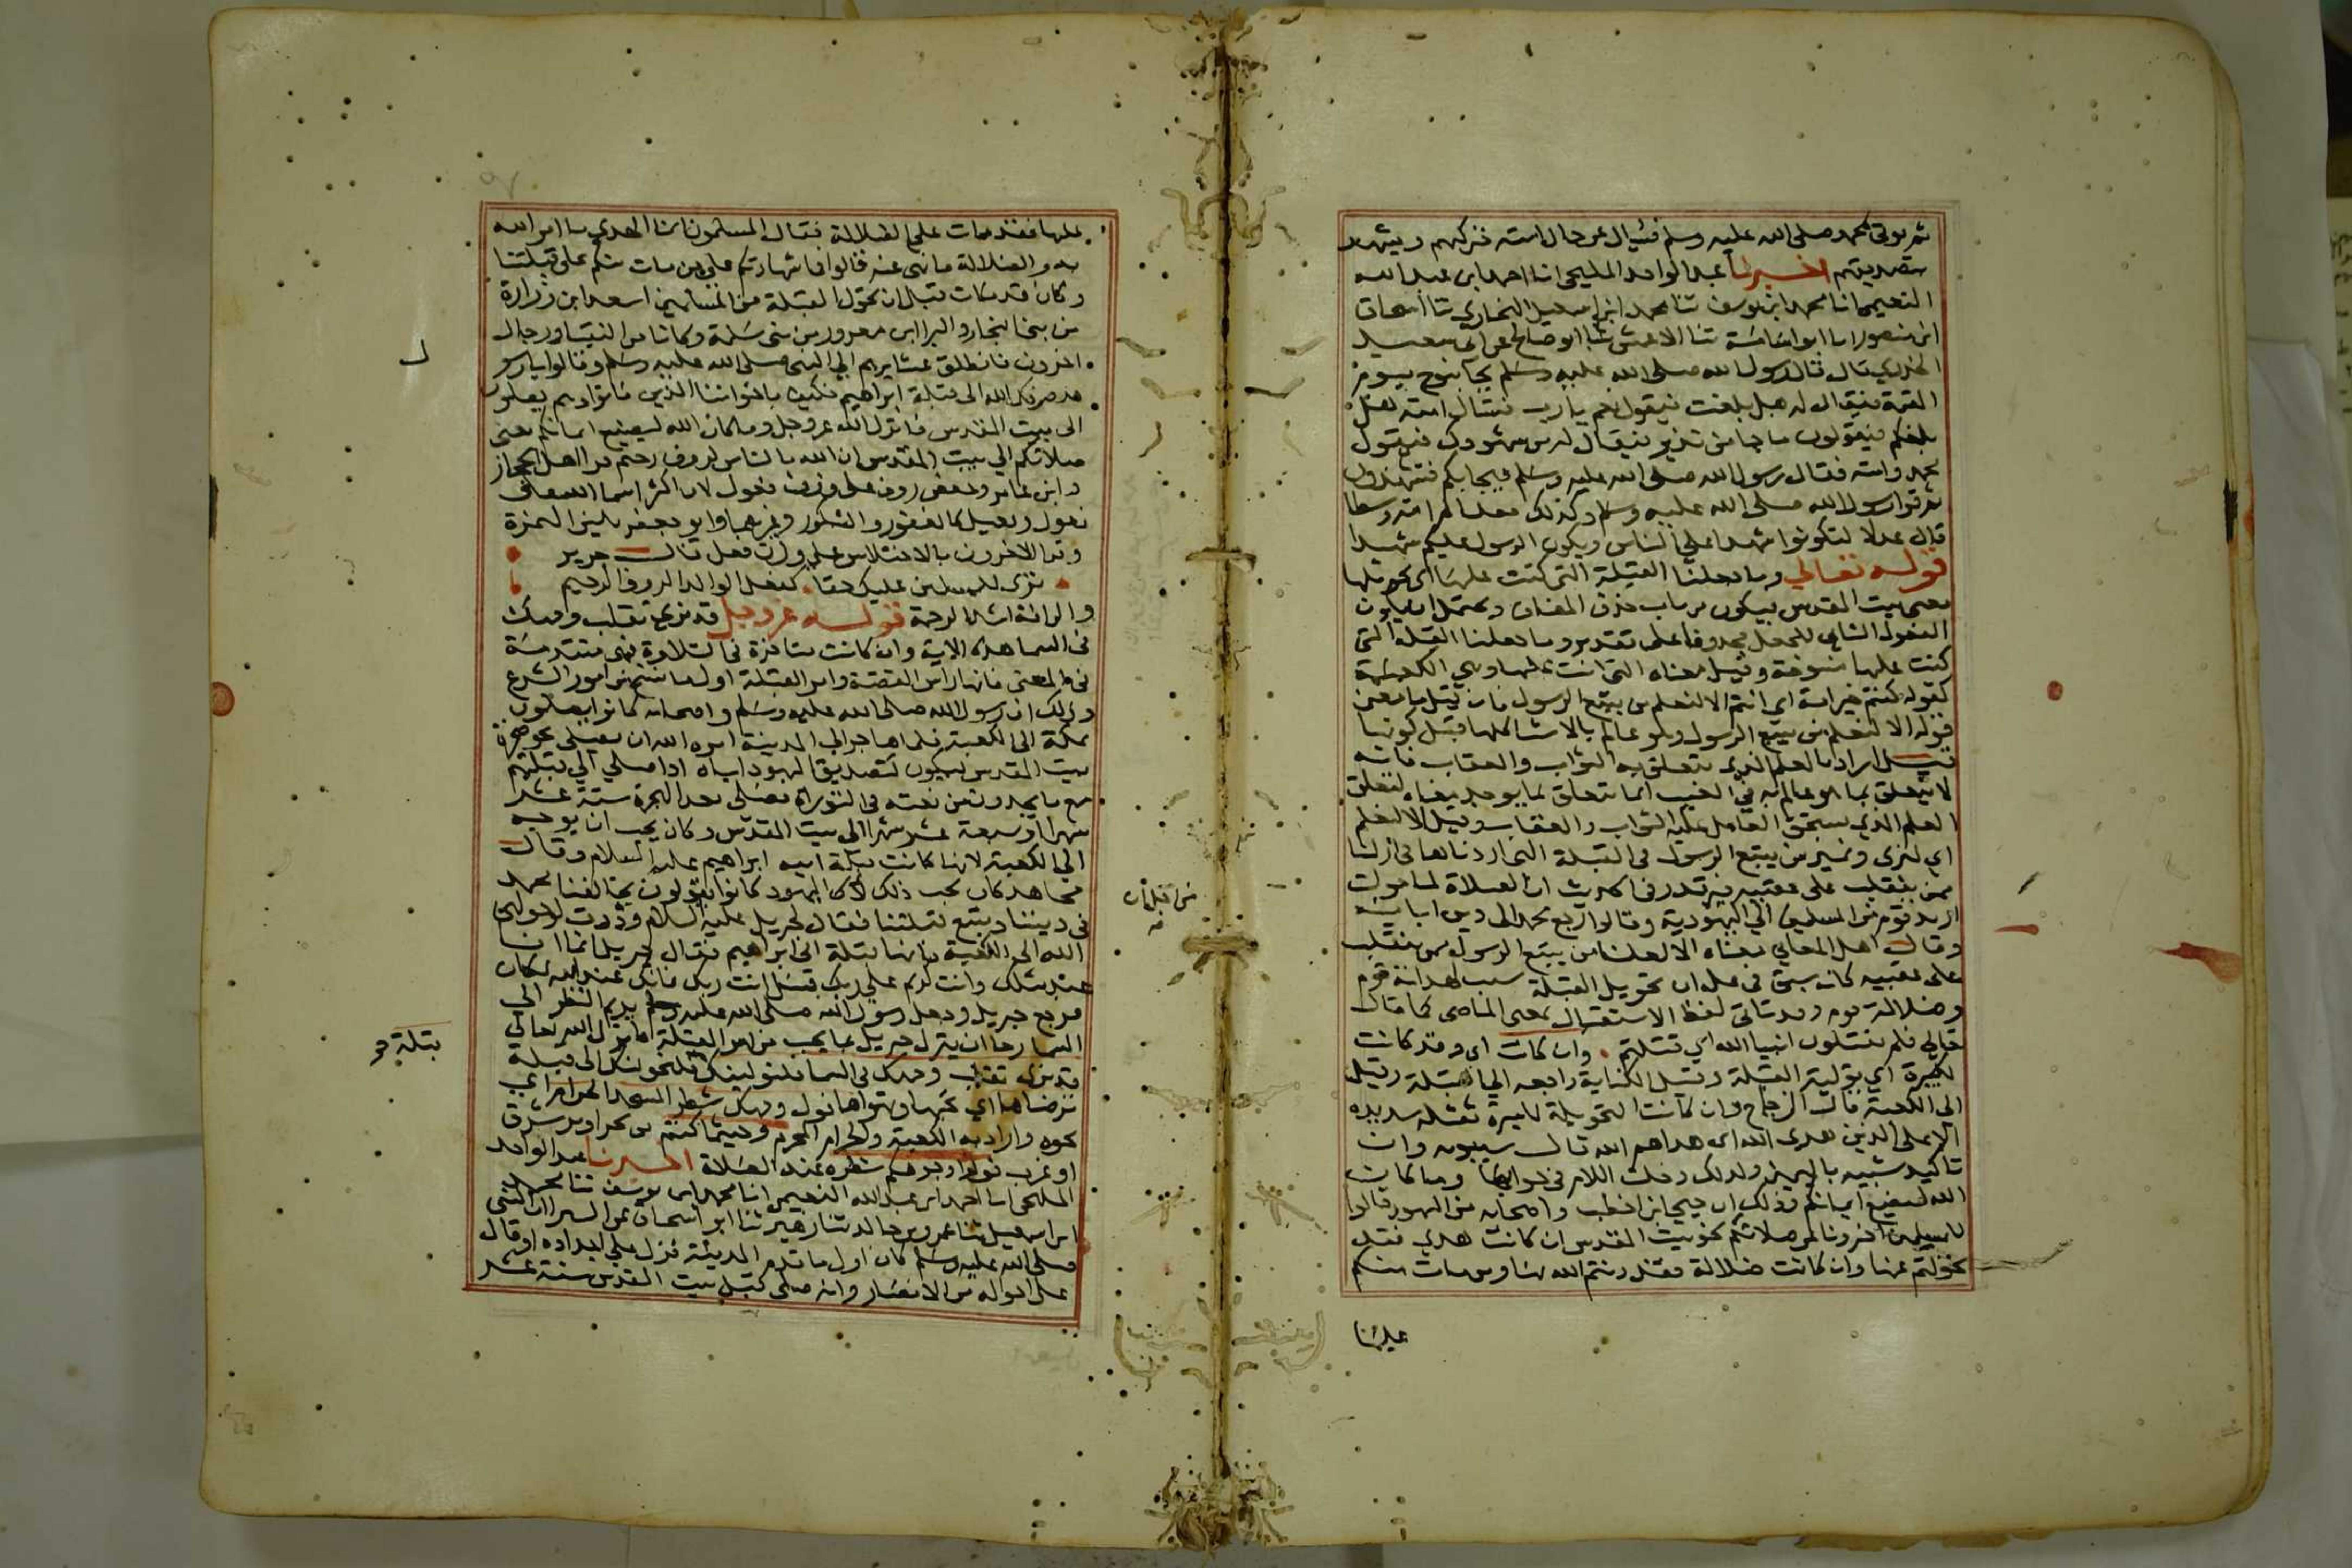 ثم يوتى بمحمد صلى الله عليه وسلم فيسال عن حال امته فيزكيهم ويشهد
بتصديقهم اخبرنا عبد الواحد المليحي انا احمد بن عبد الله
النعيمي انا محمد ابن يوسف ثنا محمد ابن اسمعيل البخاري ثنا اسحاق
ابن منصور انا ابو اسامة ثنا الاعمش ثنا ابو صالح عن ابي سعيد
الخدري قال قال رسول الله صلى الله عليه وسلم يجا بنوح يوم
القيمة فيقال له هل بلغت فيقول نعم يا رب فتسال امته هل
بلغكم فيقولون ما جانا من نذير فيقال له من شهودك فيقول
محمد وامته فقال رسول الله صلى الله عليه وسلم فيجا بكم فتشهدون
ثم قرا رسول الله صلى الله عليه وسلم وكذلك جعلناكم امة وسطا
قال عدلا لتكونوا شهدا على الناس ويكون الرسول عليكم شهيدا
قوله تعالي وما جعلنا القبلة التي كنت عليها اي تحويلها
يعني بيت المقدس فيكون من باب حذف المضاف ويحتمل ان يكون
المفعول الثاني للجعل محذوفا على تقدير وما جعلنا القبلة التي
كنت عليها منسوخة وقيل معناه التي انت عليها وهي الكعبة
كقوله كنتم خير امة اي انتم الا لنعلم من يتبع الرسول فان قيل ما معنى
قوله الا لنعلم من يتبع الرسول وهو عالم بالاشيا كلها قبل كونها
قيل اراد به العلم الذي يتعلق به الثواب والعقاب فانه
لا يتعلق بما هو عالم به في الغيب انما يتعلق بما يوجد معناه لنعلم
العلم الذي يستحق العامل عليه الثواب والعقاب وقيل الا لنعلم
اي لنرى ونميز من يتبع الرسول في القبلة
ممن ينقلب على عقبيه فيرتد وفي الحديث ان القبلة لما حولت
ارتد قوم من المسلمين الي اليهودية وقالوا رجع محمد الى دين ابايه
وقال اهل المعاني معناه الا لعلمنا من يتبع الرسول ممن ينقلب
على عقبيه كانه سبق في علمه ان تحويل القبلة سبب لهداية قوم
وضلالة قوم وقد ياتي لفظ الاستقبال بمعنى الماضي كما قال
تعالي فلم تقتلون انبيا الله اي قتلتم وان كانت اي وقد كانت
لكبيرة اي تولية القبلة وقيل الكناية راجعه الي القبلة وقيل
الي الكعبة قال الزجاج وان كانت التحويلة لكبيرة ثقيلة شديدة
الا على الذين هدى الله اي هداهم الله قال سيبويه وان
تاكيد شبيه باليمين ولذلك دخلت اللام في جوابها وما كان
الله ليضيع ايمانكم وذلك ان حيي ابن اخطب واصحابه من اليهود قالوا
للمسلمين اخبرونا عن صلاتكم نحو بيت المقدس ان كانت هدى فقد
تحولتم عنها وان كانت ضلالة فقد دنتم الله بها ومن مات منكم
عليها
عليها فقد مات علي الضلالة فقال المسلمون انما الهدي ما امر الله
به والضلالة ما نهى عنه قالوا فما شهادتكم علي من مات منكم على قبلتنا
وكان قد مات قبل ان تحول القبلة من المسلمين اسعد ابن زرارة
من بني النجار والبرا ابن معرور من بني سلمة وكانا من النقبا ورجال
اخرون فانطلق عشايرهم الي النبي صلى الله عليه وسلم وقالوا يا رسو
ل
قد صرفك الله الى قبلة ابراهيم فكيف باخواننا الذين ماتوا وهم يصلون
الى بيت المقدس فانزل الله عز وجل وما كان الله ليضيع ايمانكم يعني
صلاتكم الي بيت المقدس ان الله بالناس لروف رحيم قرا اهل الحجاز
وابن عامر وحفص روف على وزن فعول لان اكثر اسما الله على
فعول وفعيل كالغفور والشكور وغيرهما وابو جعفر يلين الهمزة
وقرا الاخرون بالاختلاس على وزن فعل قال جرير
نرى للمسلمين عليك حقا كفعل الوالد الروف الرحيم
والرافة اشد الرحمة قوله عز وجل قد نرى تقلب وجهك
في السما هذه الاية وان كانت متاخرة في التلاوة فهي متقدمة
في المعنى فانها راس القصة وامر القبلة اول ما نسخ من امور الشرع
وذلك ان رسول الله صلى الله عليه وسلم واصحابه كانوا يصلون
بمكة الى الكعبة فلما هاجر الي المدينة امره الله ان يصلي نحو صخرة
بيت المقدس ليكون تصديق اليهود اياه اذا صلي الي قبلتهم
مع ما يجدون من نعته في التوراة فصلى بعد الهجرة ستة عشر
شهرا او سبعة عشر شهرا الى بيت المقدس وكان يحب ان يوجه
الي الكعبة لانها كانت قبلة ابيه ابراهيم عليه السلام وقال
مجاهد كان يحب ذلك لان اليهود كانوا يقولون يخالفنا محمد
في ديننا ويتبع قبلتنا فقال لجبريل عليه السلام وددت لو حولني
الله الى الكعبة فانها قبلة ابي ابراهيم فقال جبريل انما انا
عبد مثلك وانت كريم علي ربك فسل انت ربك فانك عند الله بمكان
فرجع جبريل وجعل رسول الله صلى الله عليه وسلم يديم النظر الى
السما رجا ان ينزل جبريل بما يحب من امر القبلة فانزل الله تعالي
قد نرى تقلب وجهك في السما فلنولينك فلنحولنك الى قبلة
قبلة
ترضاها اي تحبها وتهواها فول وجهك شطر المسجد الحرام اي
نحوه واراد به الكعبة والحرام المحرم وحيث ما كنتم من بحر او بر شرق
او غرب فولوا وجوهكم شطره عند الصلاة اخبرنا عبد الواحد
المليحي انا احمد ابن عبد الله النعيمي انا محمد ابن يوسف ثنا محمد
ابن اسمعيل ثنا عمرو بن خالد ثنا زهير ثنا ابو اسحاق عن البرا ان النبي
صلى الله عليه وسلم كان اول ما قدم المدينة نزل على اجداده او قال
على اخواله من الانصار وانه صلى قبل بيت المقدس ستة عشر